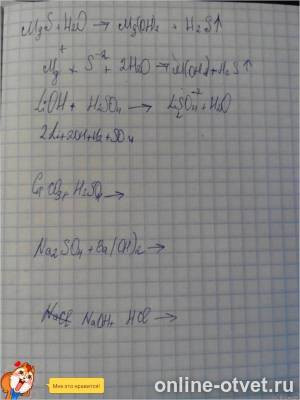 MgS + H2O → Mg(OH)2 + H2S↑
Mg + S⁻² + 2H2O → M(OH)2 + H2S↑
LiOH + H2SO4 → Li2SO4 + H2O
2Li + 2OH + H2 + SO4
H2SO4 →
Na2SO4 + Ba(OH)2 →
NaOH + HCl →
Мне это нравится!
online-otvet.ru